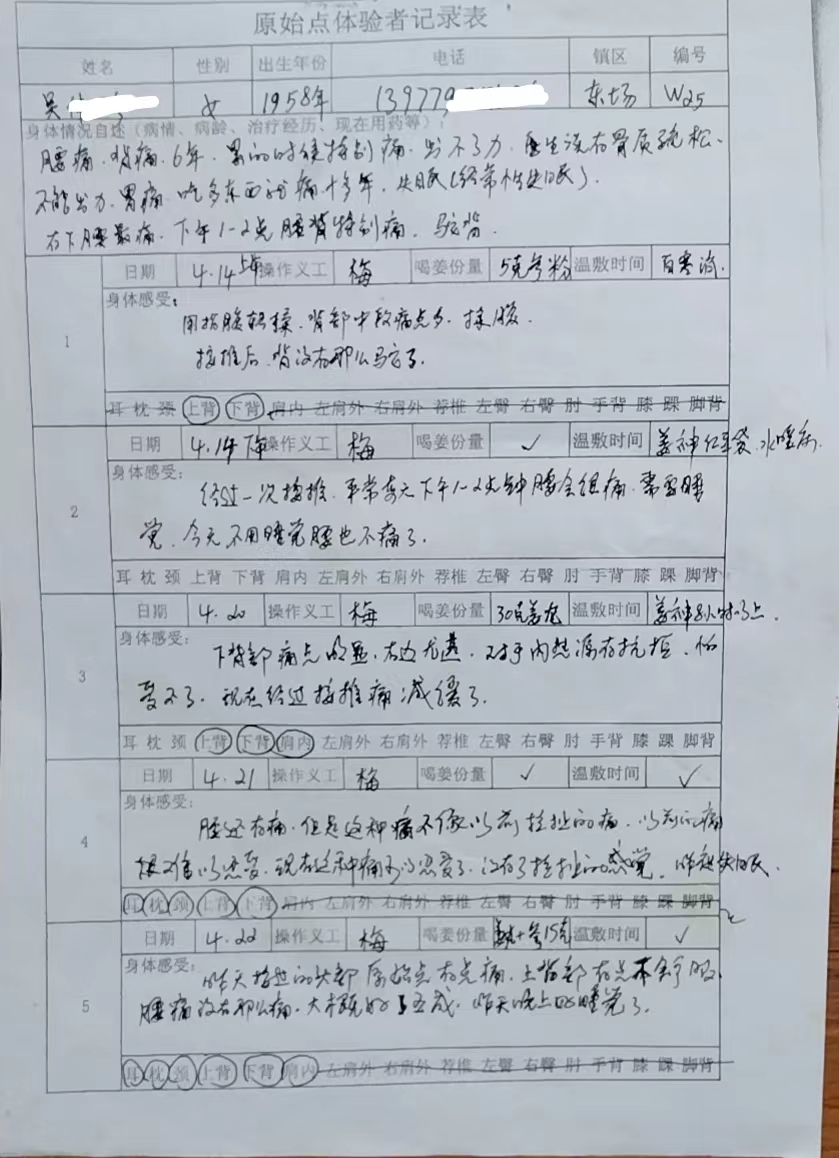 原始点体验者记录表
姓名 性别 出生年份 电话 镇区 编号
吴 女 1958年 13977 东场 W25
身体情况自述（病情、病龄、治疗经历、现在用药等）：
腰痛、背痛、6年、累的时候特别痛、出不了力、医生说有骨质疏松、
不能出力、胃痛、吃多东西就痛十多年、失眠（经常性失眠）.
右下腰最痛、下午1-2点腰背特别痛、驼背.
1
日期 4.14 操作义工 梅 喝姜份量 5克参粉 温敷时间
身体感受：
用指腹轻揉、背部中段痛点多、揉腹.
按推后、背没有那么驼了.
耳 枕 颈 上背 下背 肩内 左肩外 右肩外 荐椎 左臀 右臀 肘 手背 膝 踝 脚背
2
日期 4.14 下午 操作义工 梅 喝姜份量 ✓ 温敷时间
身体感受：
经过一次按推、平常每天下午1-2点钟腰会很痛、需要睡
觉、今天不用睡觉腰也不痛了.
耳 枕 颈 上背 下背 肩内 左肩外 右肩外 荐椎 左臀 右臀 肘 手背 膝 踝 脚背
3
日期 4.20 操作义工 梅 喝姜份量 30克姜 温敷时间
身体感受：
下背部痛点明显、右边尤甚、对于内热源有抗拒、怕
受不了、现在经过按推痛减缓了.
耳 枕 颈 上背 下背 肩内 左肩外 右肩外 荐椎 左臀 右臀 肘 手背 膝 踝 脚背
4
日期 4.21 操作义工 梅 喝姜份量 ✓ 温敷时间 ✓
身体感受：
腰还有痛、但是这种痛不像以前拉扯的痛、以前的痛
很难以忍受、现在这种痛可以忍受了、没有了拉扯的感觉、昨夜失眠
耳 枕 颈 上背 下背 肩内 左肩外 右肩外 荐椎 左臀 右臀 肘 手背 膝 踝 脚背
5
日期 4.22 操作义工 梅 喝姜份量 15克 温敷时间 ✓
身体感受：
昨天按过的头部原始点有点痛、上背部有点不舒服
腰痛没有那么痛、大概好了五成、昨天晚上睡觉了.
耳 枕 颈 上背 下背 肩内 左肩外 右肩外 荐椎 左臀 右臀 肘 手背 膝 踝 脚背